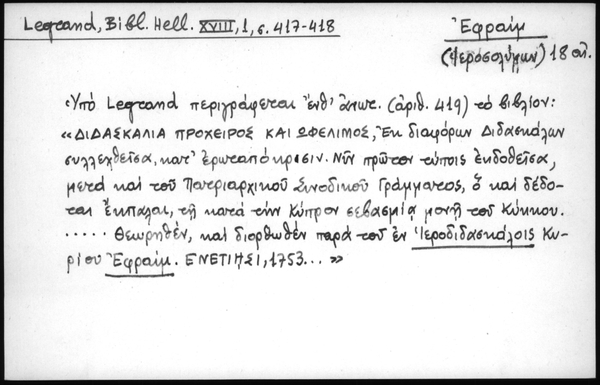 Legrand, Bibl. Hell. XVIII, 1, σ. 417-418
Ἐφραίμ
(Ἱεροσολύμων) 18 αἰ.
Ὑπὸ Legrand περιγράφεται ἐνθ' ἀνωτ. (ἀριθ. 419) τὸ βιβλίον:
«ΔΙΔΑΣΚΑΛΙΑ ΠΡΟΧΕΙΡΟΣ ΚΑΙ ΩΦΕΛΙΜΟΣ, Ἐκ διαφόρων Διδασκάλων
συλλεχθεῖσα, κατ' ἐρωταπόκρισιν. Νῦν πρῶτον τύποις ἐκδοθεῖσα,
μετὰ καὶ τοῦ Πατριαρχικοῦ Συνοδικοῦ Γράμματος, ὃ καὶ δέδο-
ται ἔκπαλαι, τῇ κατὰ τὴν Κύπρον σεβασμίᾳ μονῇ τοῦ Κύκκου.
..... Θεωρηθὲν, καὶ διορθωθὲν παρὰ τοῦ ἐν Ἱεροδιδασκάλοις Κυ-
ρίου Ἐφραίμ. ΕΝΕΤΙΗΣΙ, 1753... »